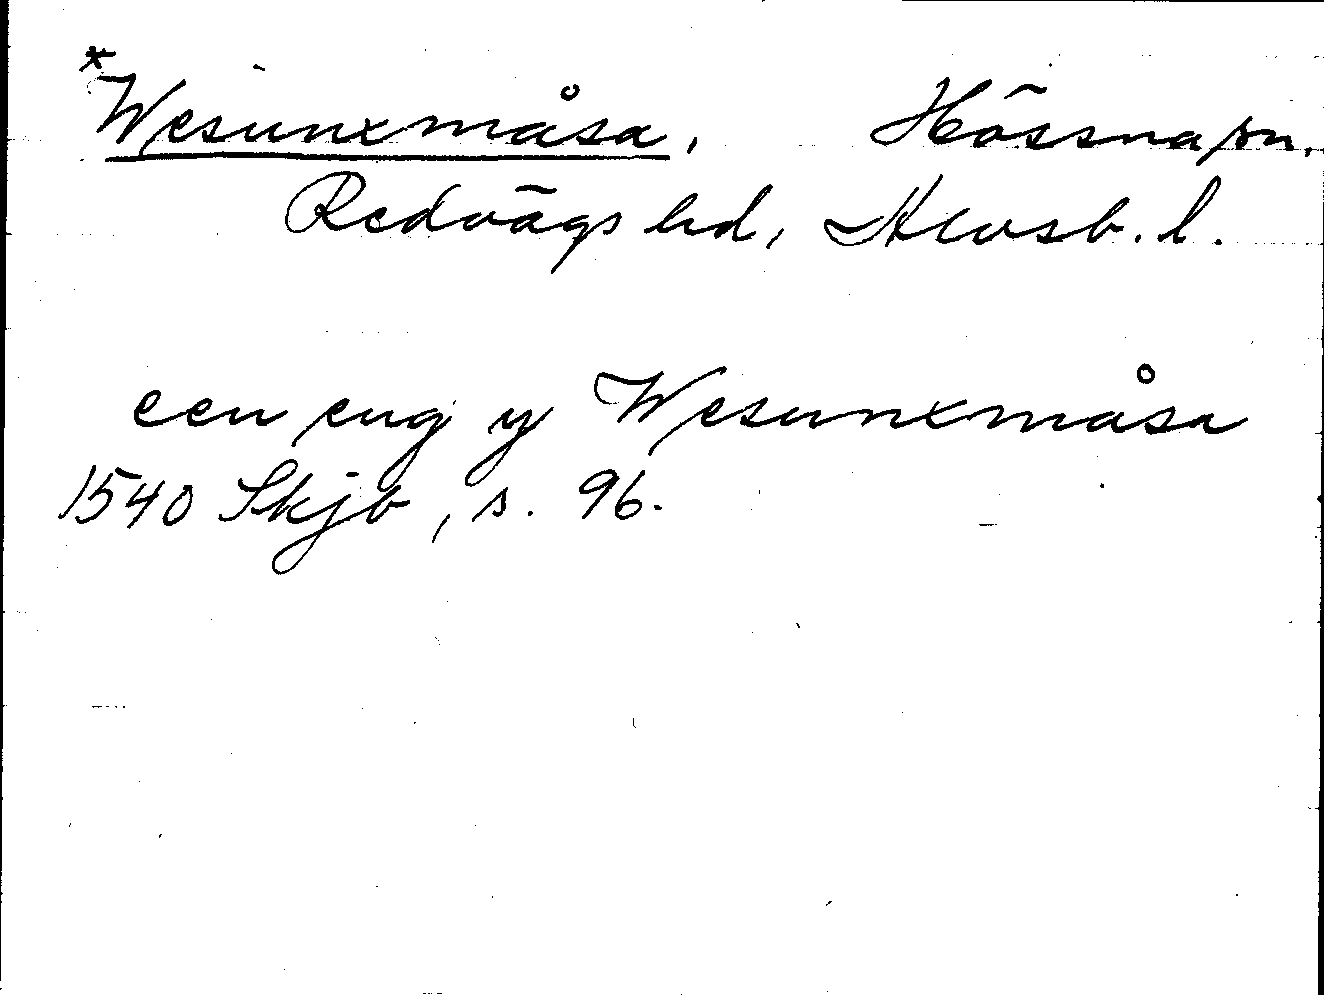 *Wesunxmåsa, Hössna sn.
Redvägs hd, Älvsb. l.
een eng y Wesunxmåsa
1540 Skjb, s. 96.